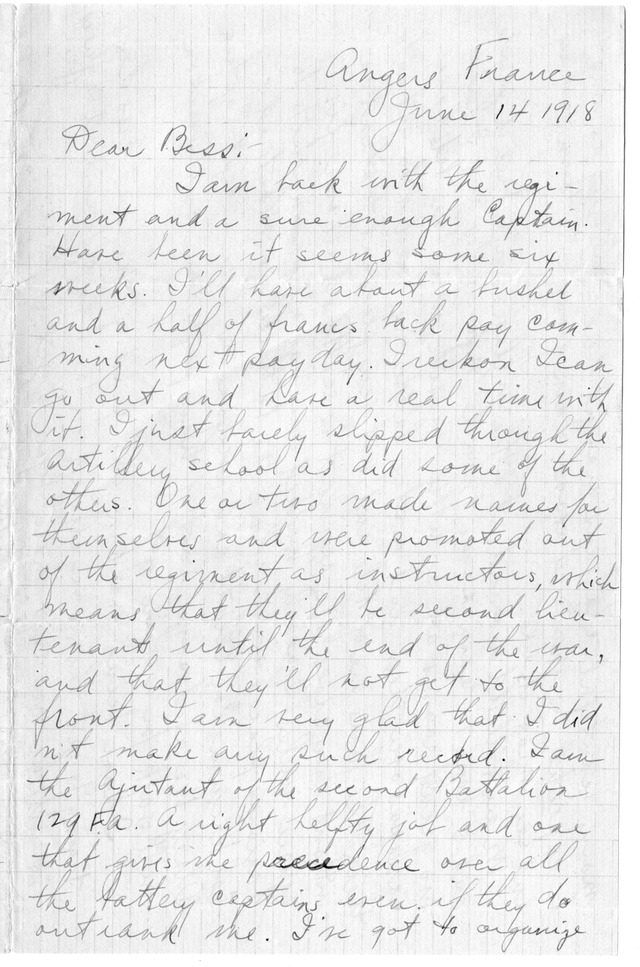 Angers France
June 14 1918
Dear Bess:-
I am back with the regi-
ment and a sure enough Captain.
Have been it seems some six
weeks. I'll have about a bushel
and a half of francs back pay com-
ming next payday. I reckon I can
go out and have a real time with
it. I just barely slipped through the
artillery school as did some of the
others. One or two made names for
themselves and were promoted out
of the regiment as instructors, which
means that they'll be second lieu-
tenants until the end of the war,
and that they'll not get to the
front. I am very glad that I did
n't make any such record. I am
the Ajutant of the second Battalion
129 F.a. A right hefty job and one
that gives me precedence over all
the battery captains even if they do
outrank me. I've got to organize